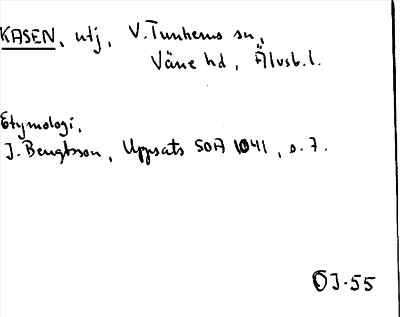 KASEN, utj, V. Tunhems sn,
Väne hd, Älvsb.l.
Etymologi,
J. Bengtsson, Uppsats SOA 1041, s. 7.
OJ-55